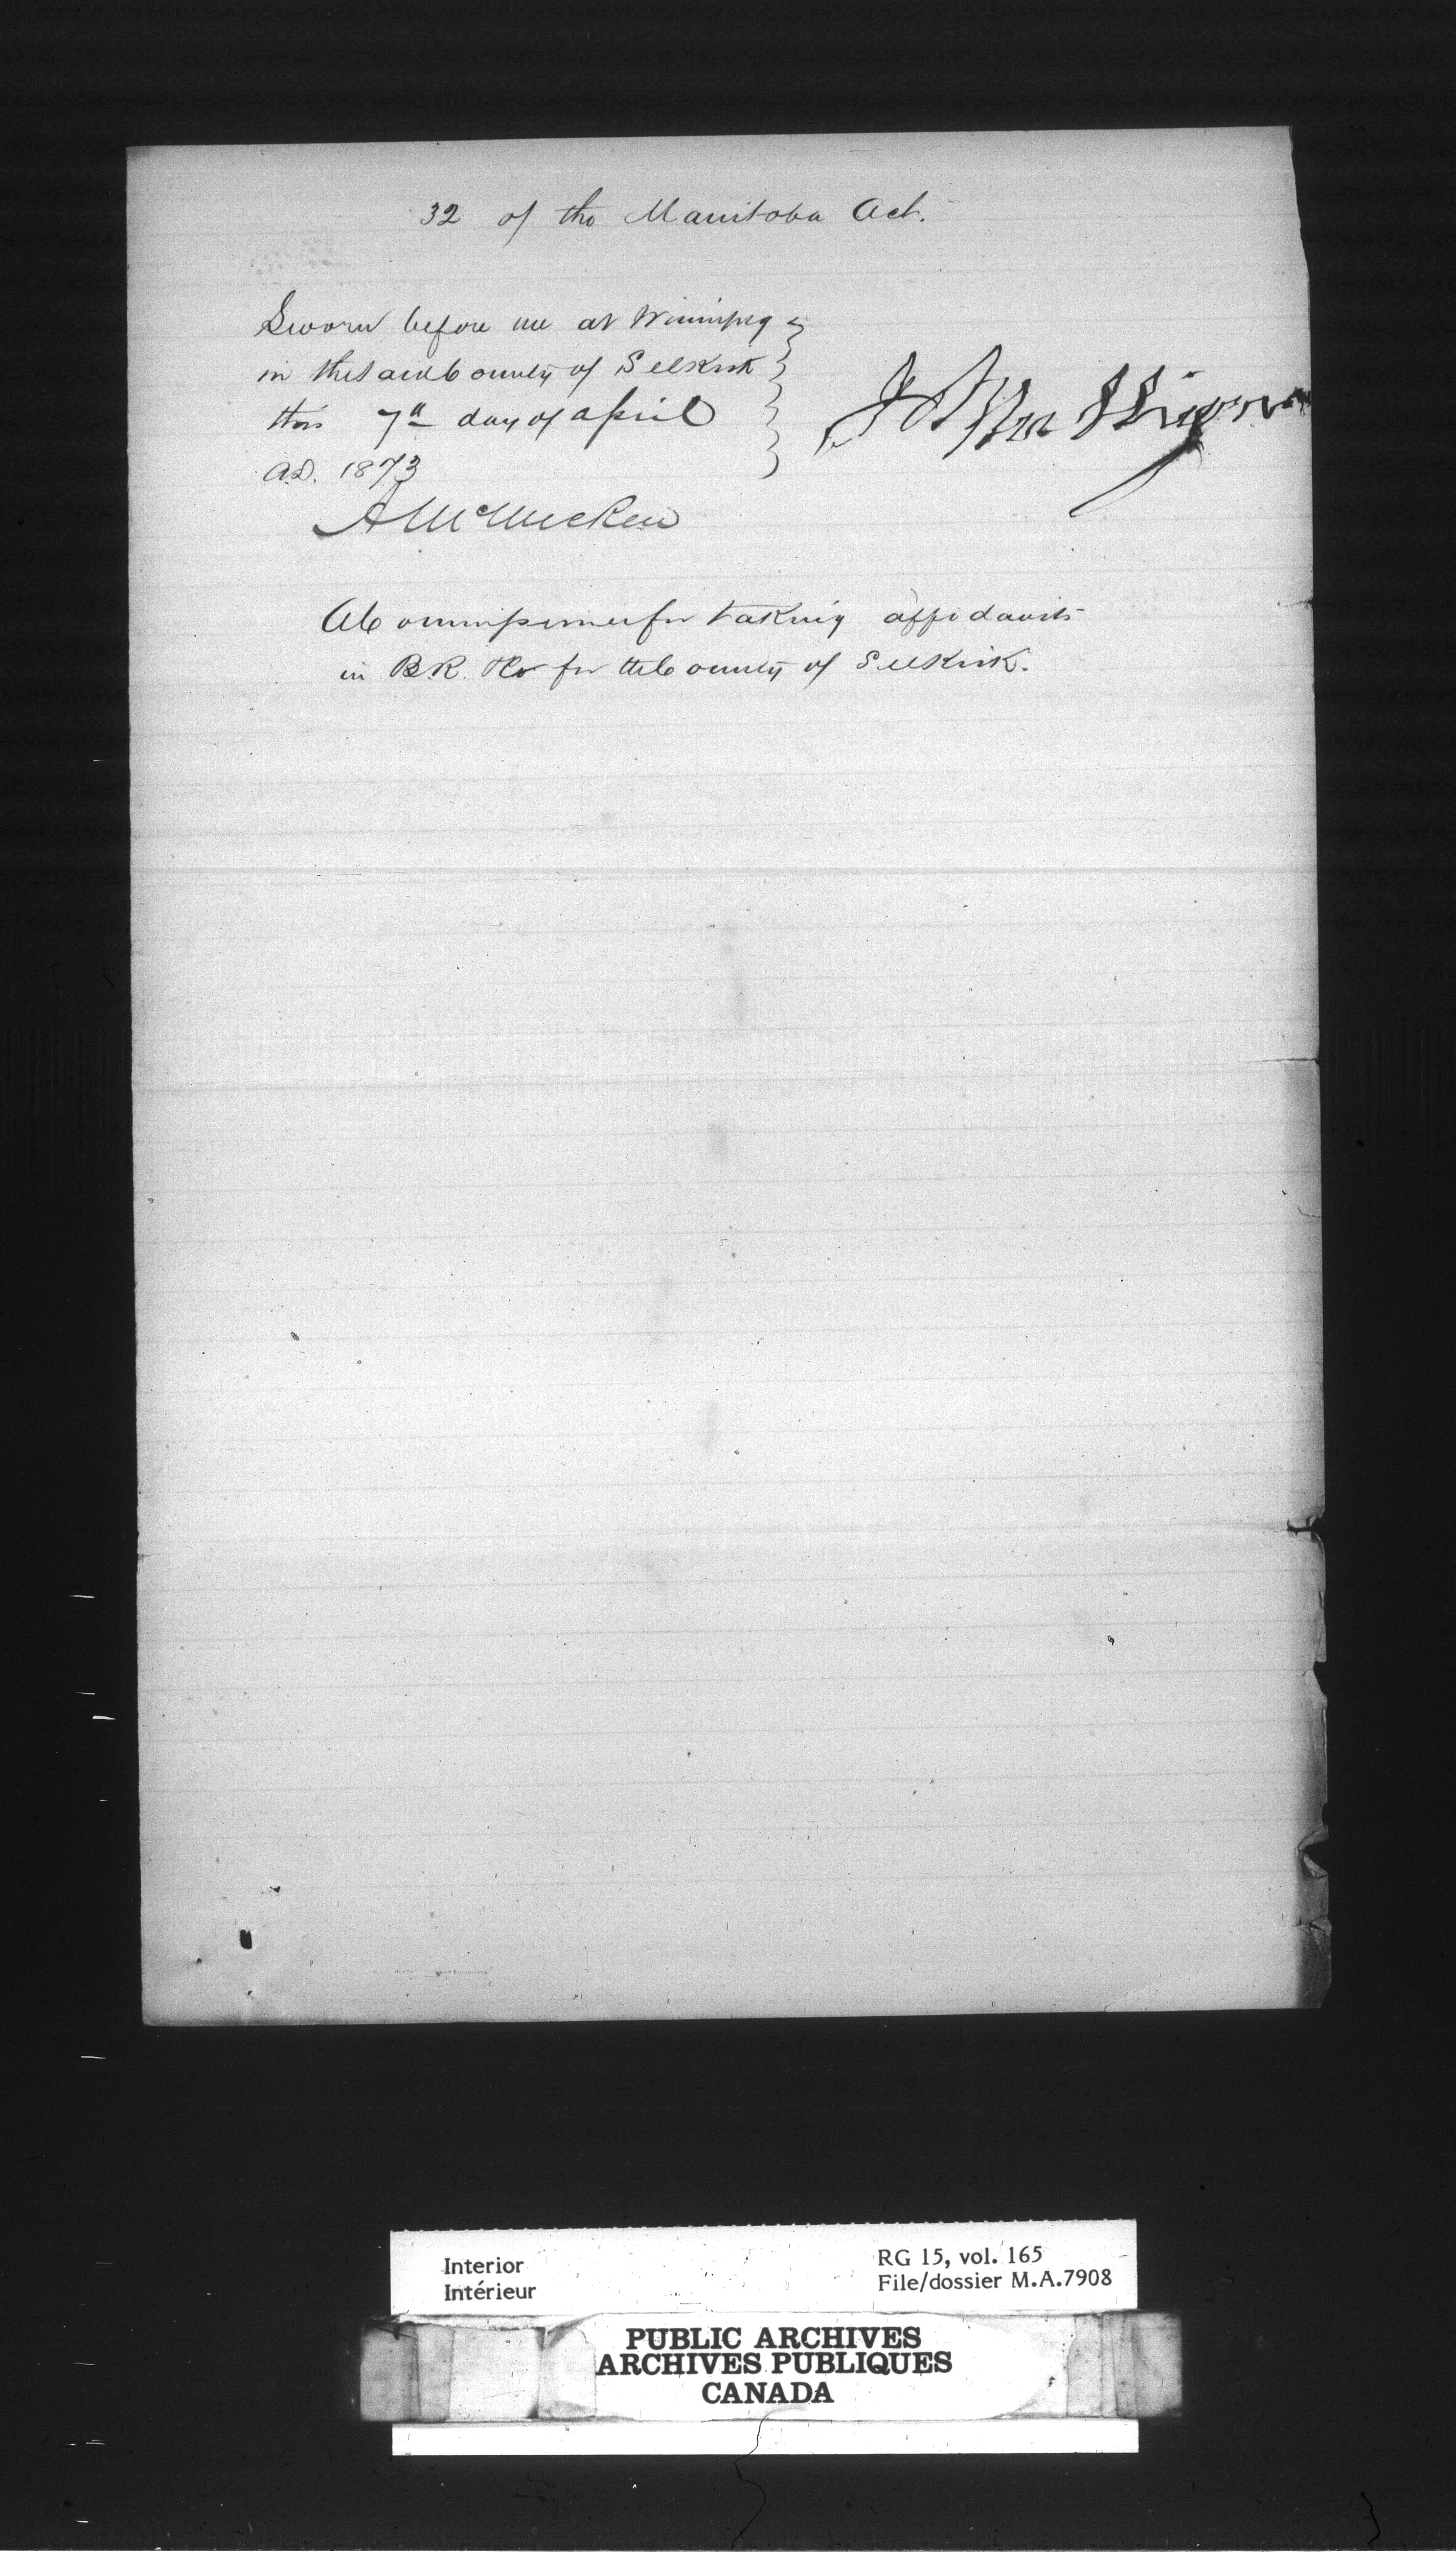 32 of the Manitoba Act.
Sworn before me at Winnipeg
in the said County of Selkirk
this 7th day of April
A.D. 1873
John
A McMicken
A Commissioner for taking affidavits
in B.R. &c for the County of Selkirk.
Interior
Intérieur
RG 15, vol. 165
File/dossier M.A.7908
PUBLIC ARCHIVES
ARCHIVES PUBLIQUES
CANADA